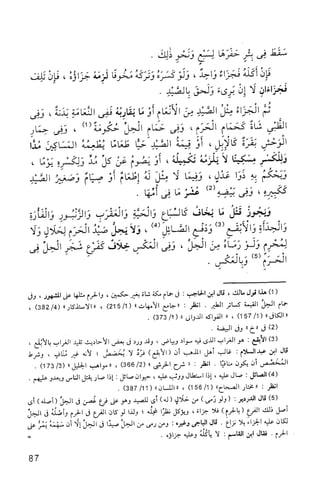 سَقَطَ فِي بِئْرٍ حَفَرَهَا لِسَبُعٍ وَنَحْوِ ذَلِكَ .
فَإِنْ أَكَلَهُ فَجَزَاءٌ وَاحِدٌ ، وَلَوْ كَسَرَهُ وَتَرَكَهُ مَخُوفًا لَزِمَهُ جَزَاؤُهُ ، فَإِنْ تَلِفَ
فَجَزَاءَانِ لَا إِنْ بَرِىءَ وَلَحِقَ بِالصَّيْدِ .
ثُمَّ الْجَزَاءُ مِثْلُ الصَّيْدِ مِنَ الْأَنْعَامِ أَوْ مَا يُقَارِبُهُ فَفِي النَّعَامَةِ بَدَنَةٌ ، وَفِي
الظَّبْيِ شَاةٌ كَحَمَامِ الْحَرَمِ ، وَفِي حَمَامِ الْحِلِّ حُكُومَةٌ (1) ، وَفِي حِمَارِ
الْوَحْشِ بَقَرَةٌ كَالْإِبِلِ ، أَوْ قِيمَةُ الصَّيْدِ حَيًّا طَعَامًا يُطْعِمُهُ الْمَسَاكِينَ مُدًّا
وَلِلْكَسْرِ مِسْكِينًا لَا يَلْزَمُهُ تَكْمِيلُهُ ، أَوْ يَصُومُ عَنْ كُلِّ مُدٍّ وَلِكَسْرِهِ يَوْمًا ،
وَيَحْكُمُ بِهِ ذَوَا عَدْلٍ ، وَفِيمَا لَا مِثْلَ لَهُ إِطْعَامٌ أَوْ صِيَامٌ وَصَغِيرُ الصَّيْدِ
كَكَبِيرِهِ ، وَفِي بَيْضِهِ (2) عُشْرُ مَا فِي أُمِّهَا .
وَيَجُوزُ قَتْلُ مَا يُخَافُ كَالسِّبَاعِ وَالْحَيَّةِ وَالْعَقْرَبِ وَالزُّنْبُورِ وَالْفَأْرَةِ
وَالْحِدَأَةِ وَالْأَبْقَعِ (3) وَدَفْعُ الصَّائِلِ (4) ، وَلَا يَحِلُّ صَيْدُ الْحَرَمِ لِحَلَالٍ وَلَا
لِمُحْرِمٍ وَلَوْ رَمَاهُ مِنَ الْحِلِّ ، وَفِي الْعَكْسِ خِلَافٌ كَفَرْعِ شَجَرِ الْحِلِّ فِي
الْحَرَمِ (5) وَبِالْعَكْسِ .
(1) هذا قول مالك ، قال ابن الحاجب : في حمام مكة شاة بغير حكمين ، والحرم مثلها على المشهور ، وفي
حمام الحل القيمة كسائر الطير . انظر : « جامع الأمهات » (1/ 215) ، « الاستذكار » (4/ 382)
« الكافي » (1/ 157) ، « الفواكه الدواني » (1/ 373) .
(2) في « خ » وفي البيضة .
(3) الأبقع : هو الغراب الذي فيه سواد وبياض ، وقد ورد في بعض الأحاديث تقيد الغراب بالأبقع ،
قال ابن عبد السلام : غالب أهل المذهب أن (الأبقع) فَرْدٌ لا يُخَصَّصُ ؛ لأنه غير مُنَافٍ ، وشرط
المُخَصِّصِ أن يكون منافيًا . انظر : « شرح الخرشي » (2/ 366) ، « مواهب الجليل » (3/ 173) .
(4) الصائل : صال عليه ، إذا استطال ووثب عليه ، حيوان صائل : إذا صار يقتل الناس ويعدو عليهم .
انظر : « مختار الصحاح » (1/ 156) ، « اللسان » (11/ 387) .
(5) قال الدردير : (ولو رُمِيَ) من حَلَالٍ (له) أي للصيد وهو على فرع غُصن في الحِلِّ (أصله) أي
أصل ذلك الفرع (بالحرم) فلا جزاء ، ويؤكل نظرًا لمحله ؛ ولذا لو كان الفرع في الحرم وأصْلُهُ في الحِلِّ
لكان عليه الجزاء بلا نزاع . قال الباجي وغيره : ومن رمى من الحل صيدًا في الحِلِّ إلّا أن سَهْمَهُ يَمُرُّ على
الحرم . فقال ابن القاسم : لا يأكلُهُ وعليه جزاؤه . =
87